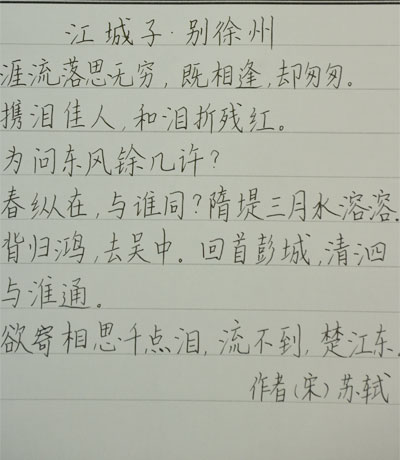 江城子·别徐州
涯流落思无穷,既相逢,却匆匆。
携泪佳人,和泪折残红。
为问东风馀几许?
春纵在,与谁同?隋堤三月水溶溶.
背归鸿,去吴中。回首彭城,清泗
与淮通。
欲寄相思千点泪,流不到,楚江东.
作者(宋)苏轼